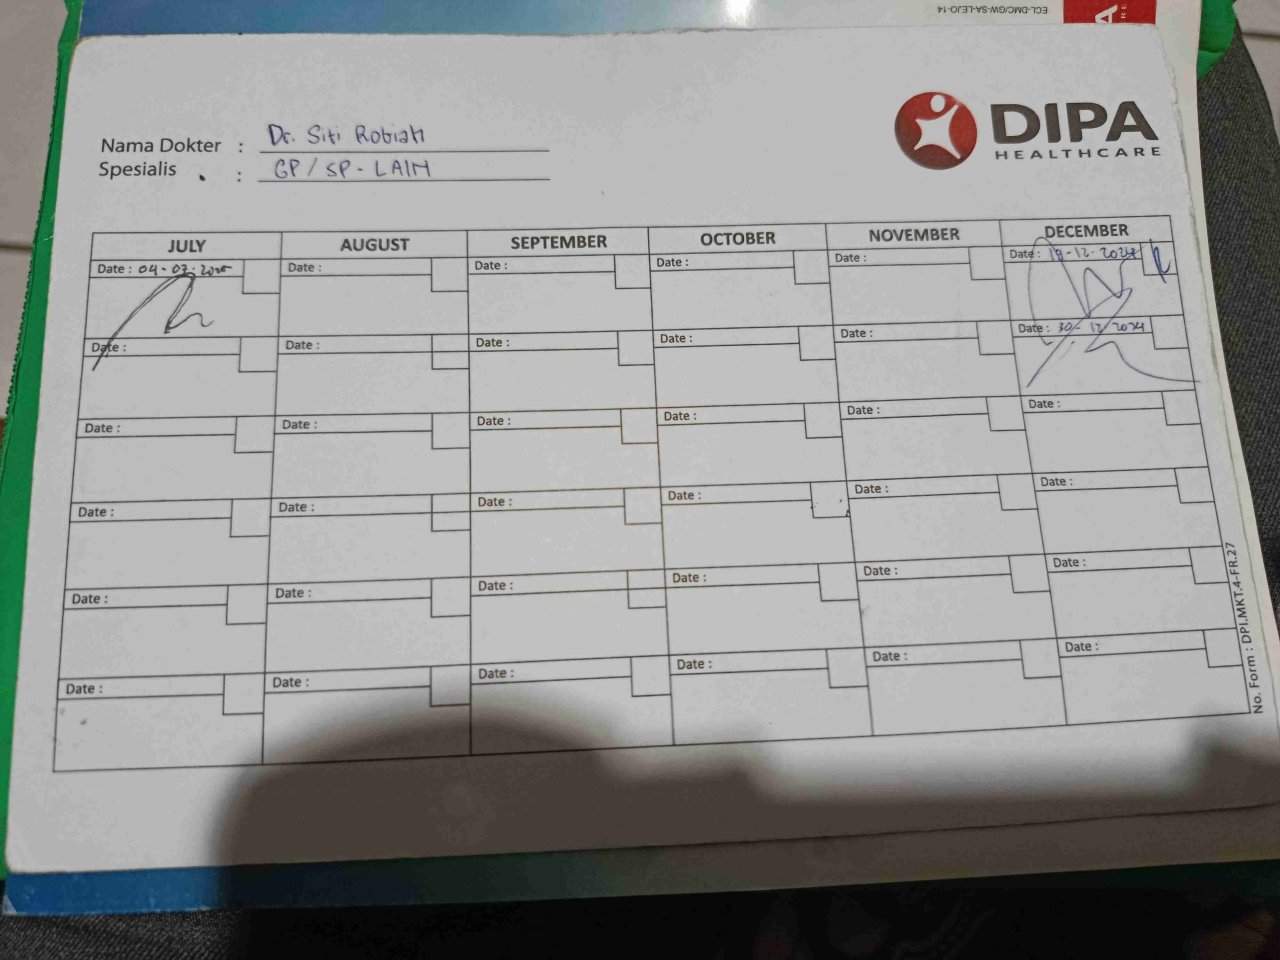 ECL-DMC/GW-SA-LEJO-14
DIPA
HEALTHCARE
Nama Dokter : Dr. Siti Robiah
Spesialis : GP / SP - LAIN
JULY AUGUST SEPTEMBER OCTOBER NOVEMBER DECEMBER
Date : 04-07-2025 Date : Date : Date : Date : Date : 19-12-2024
Date : Date : Date : Date : Date : Date : 30-12-2024
Date : Date : Date : Date : Date : Date :
Date : Date : Date : Date : Date : Date :
Date : Date : Date : Date : Date : Date :
Date : Date : Date : Date : Date : Date :
No. Form : DPI.MKT.4-FR.27